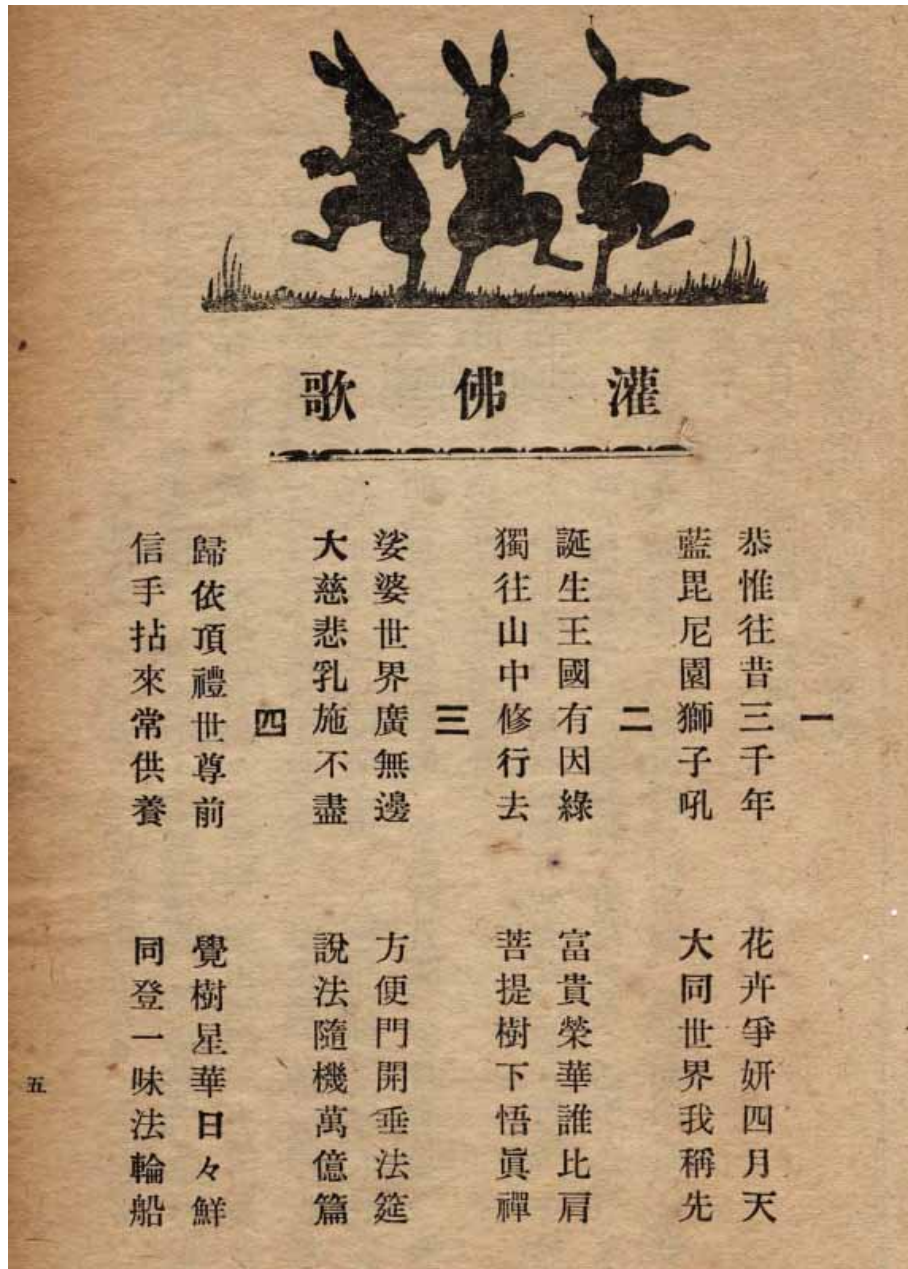 灌佛歌
一
恭惟往昔三千年
花卉爭妍四月天
藍毘尼園獅子吼
大同世界我稱先
二
誕生王國有因綠
富貴榮華誰比肩
獨往山中修行去
菩提樹下悟眞禪
三
娑婆世界廣無邊
方便門開垂法筵
大慈悲乳施不盡
說法隨機萬億篇
四
歸依頂禮世尊前
覺樹星華日々鮮
信手拈來常供養
同登一味法輪船
五